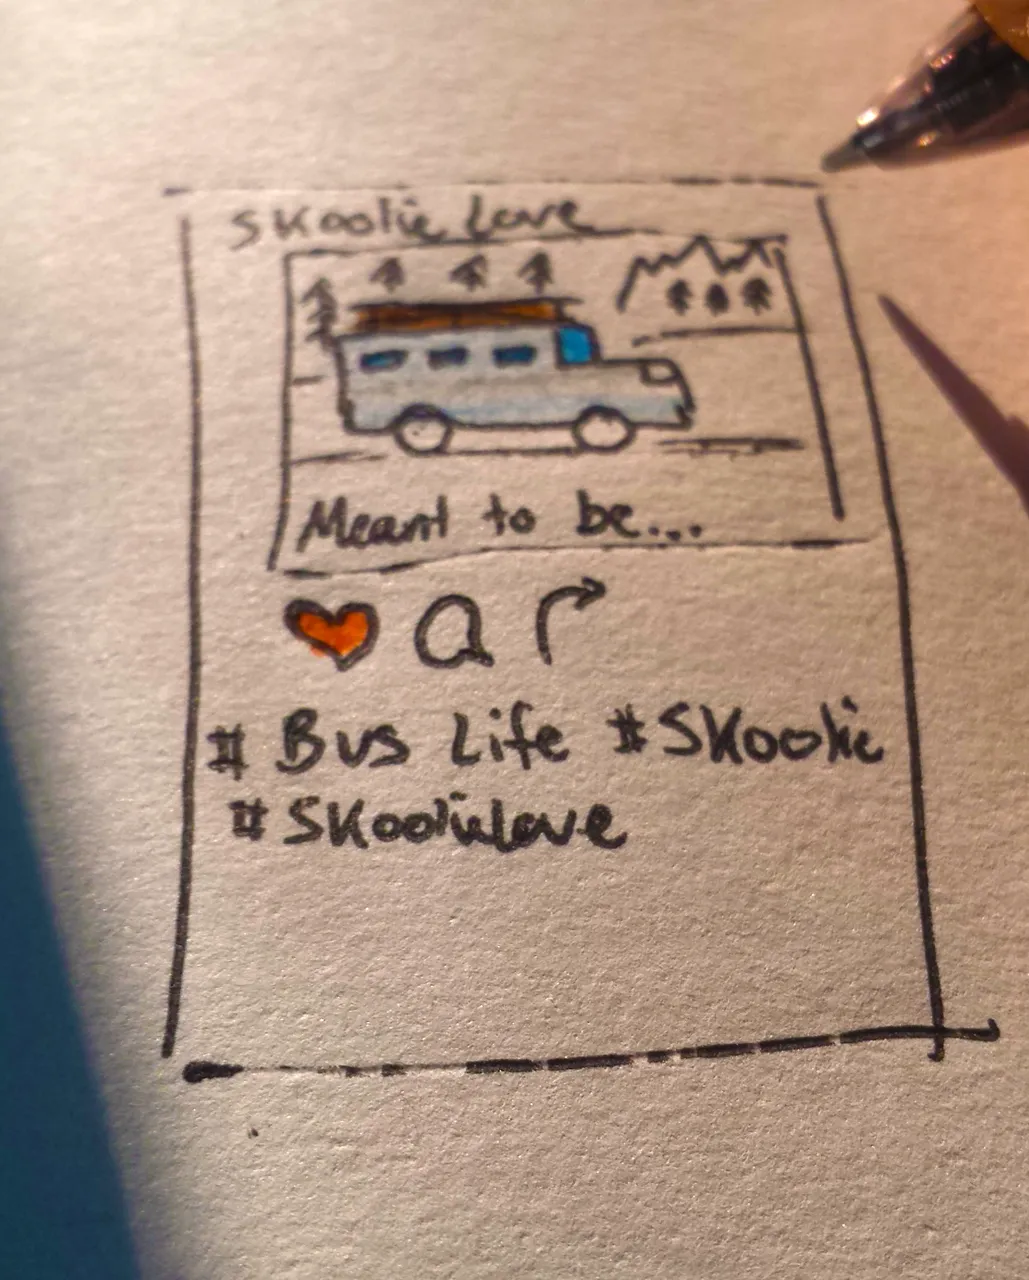 SKoolie Love
Meant to be...
# Bus Life #SKoolie
#SKoolielove